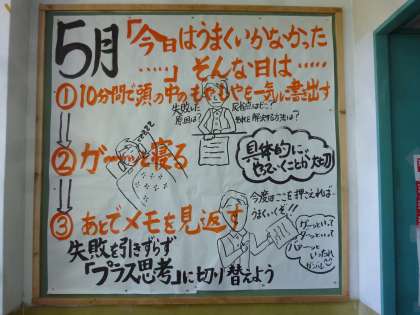 5月
「今日はうまくいかなかった
……」そんな日は……
①10分間で頭の中のもやもやを一気に書き出す
失敗した
原因は?
反省点はどこ?
それを解決する方法は?
zzz
②ガーッと寝る
具体的に、
やっていくことが大切
③あとでメモを見返す
今度はここを押さえれば、
うまくいくぞ!!
失敗を引きずらず
「プラス思考」に切り替えよう
ガーッといって
ダーッといって
バァーッと
いったれ